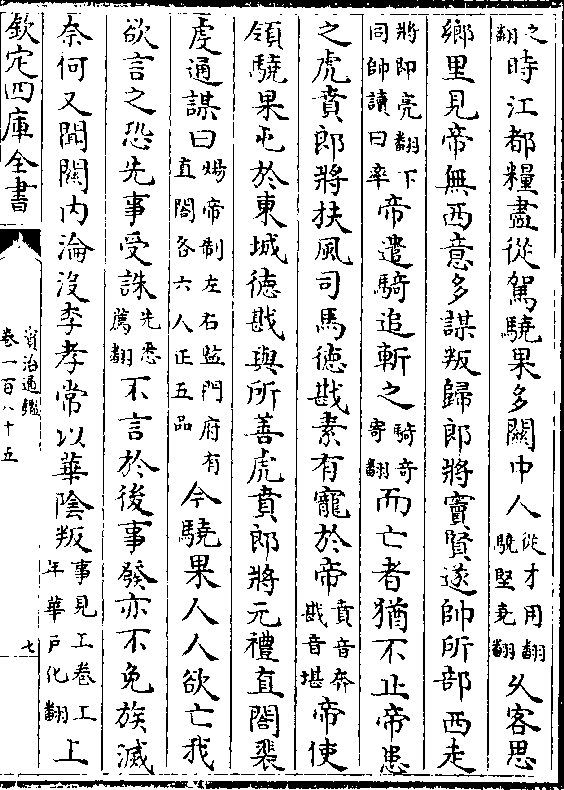 之翻時江都糧盡從駕驍果多關中人從才用翻驍堅堯翻久客思
鄉里見帝無西意多謀叛歸郎將竇賢遂帥所部西走
將即亮翻下同帥讀曰率帝遣騎追斬之騎奇寄翻而亡者猶不止帝患
之虎賁郎將扶風司馬德戡素有寵於帝賁音奔戡音堪帝使
領驍果屯於東城德戡與所善虎賁郎將元禮直閤裴
虔通謀曰煬帝制左右監門府有直閤各六人正五品今驍果人人欲亡我
欲言之恐先事受誅先悉薦翻不言於後事發亦不免族滅
奈何又聞關内淪沒李孝常以華隂叛事見上卷上年華戶化翻上
欽定四庫全書
資治通鑑
卷一百八十五
七